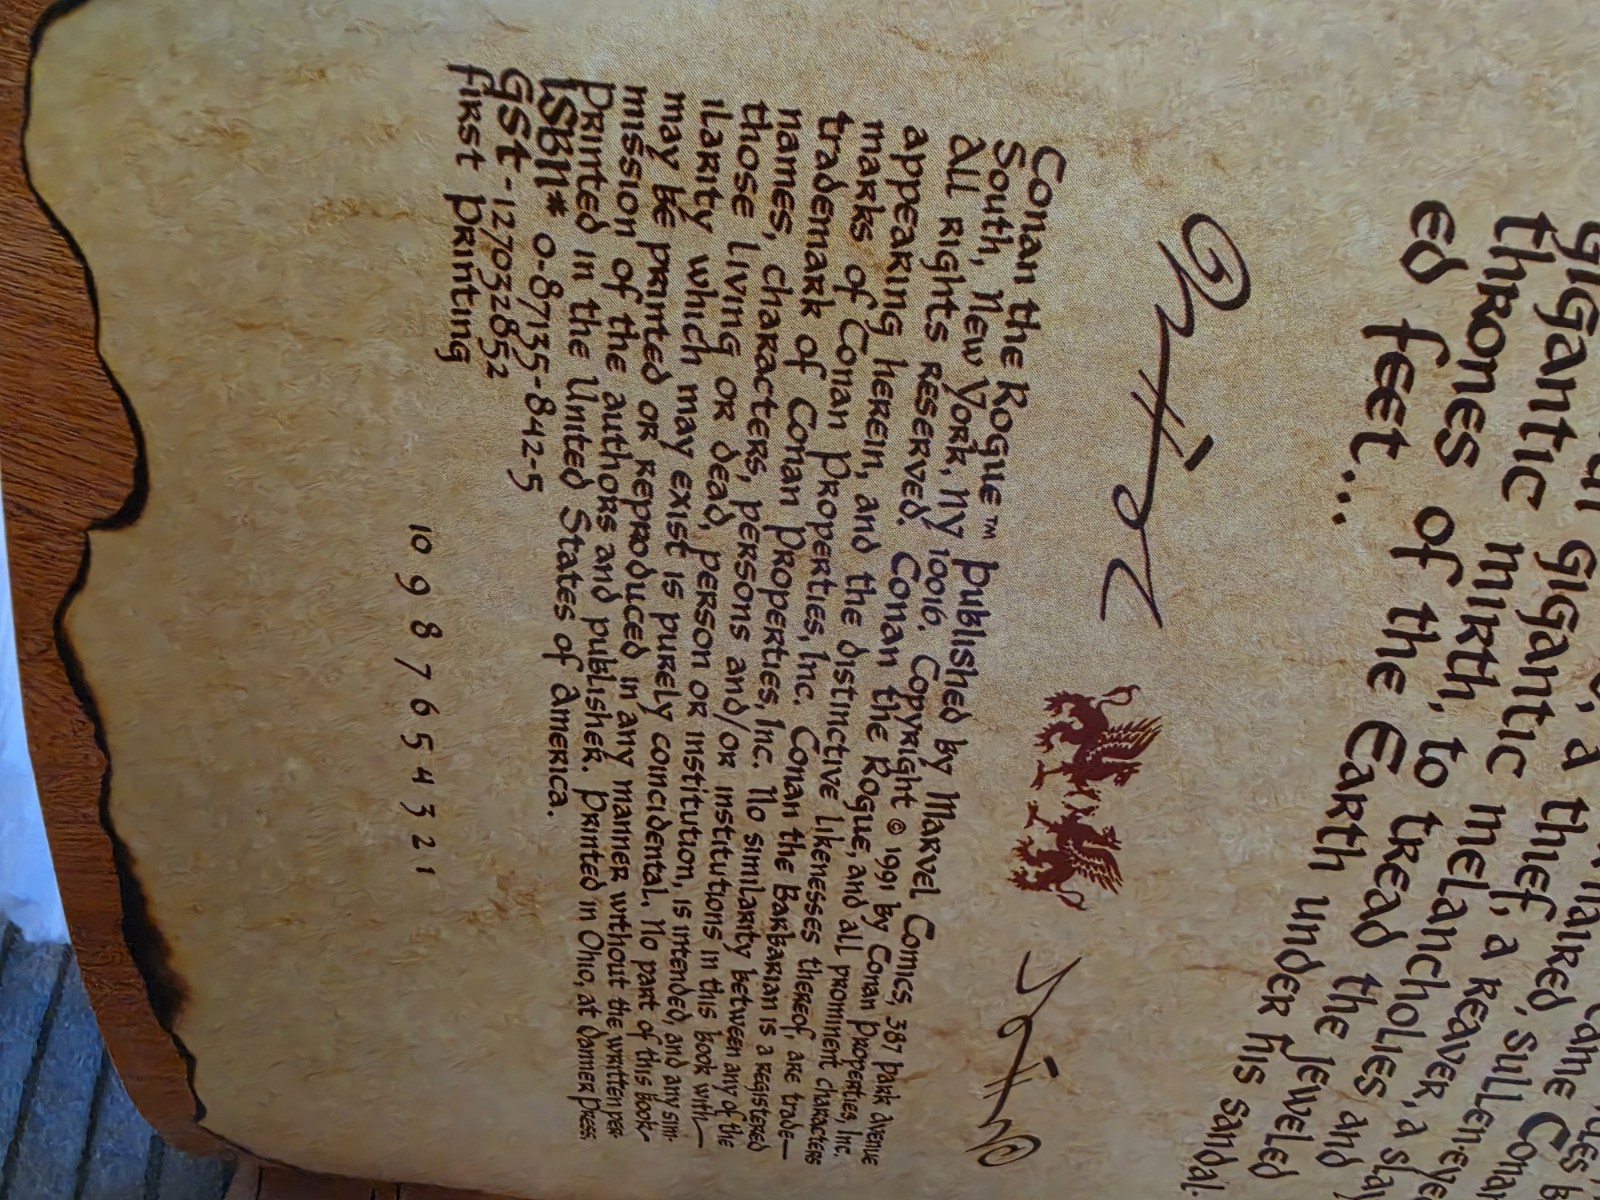 gigantic gigantic, a thief, a reaver, a sla
thrones mirth, to tread the jeweled
gigantic melancholies and
ed feet... of the Earth under his sandal.
Conan the Rogue™ published by Marvel Comics, 387 Park Avenue
South, New York, NY 10016. Copyright © 1991 by Conan Properties, Inc.
All rights reserved. Conan the Rogue, and all prominent characters
appearing herein, and the distinctive likenesses thereof, are trade—
marks of Conan Properties, Inc. Conan the Barbarian is a registered
trademark of Conan Properties, Inc. No similarity between any of the
names, characters, persons and/or institutions in this book with—
those living or dead, person or institution, is intended, and any sim-
ilarity which may exist is purely coincidental. No part of this book
may be printed or reproduced in any manner without the written per-
mission of the authors and publisher. Printed in Ohio, at Danner Press.
Printed in the United States of America.
ISBN# 0-87135-842-5
GST-127032852
first printing
10 9 8 7 6 5 4 3 2 1